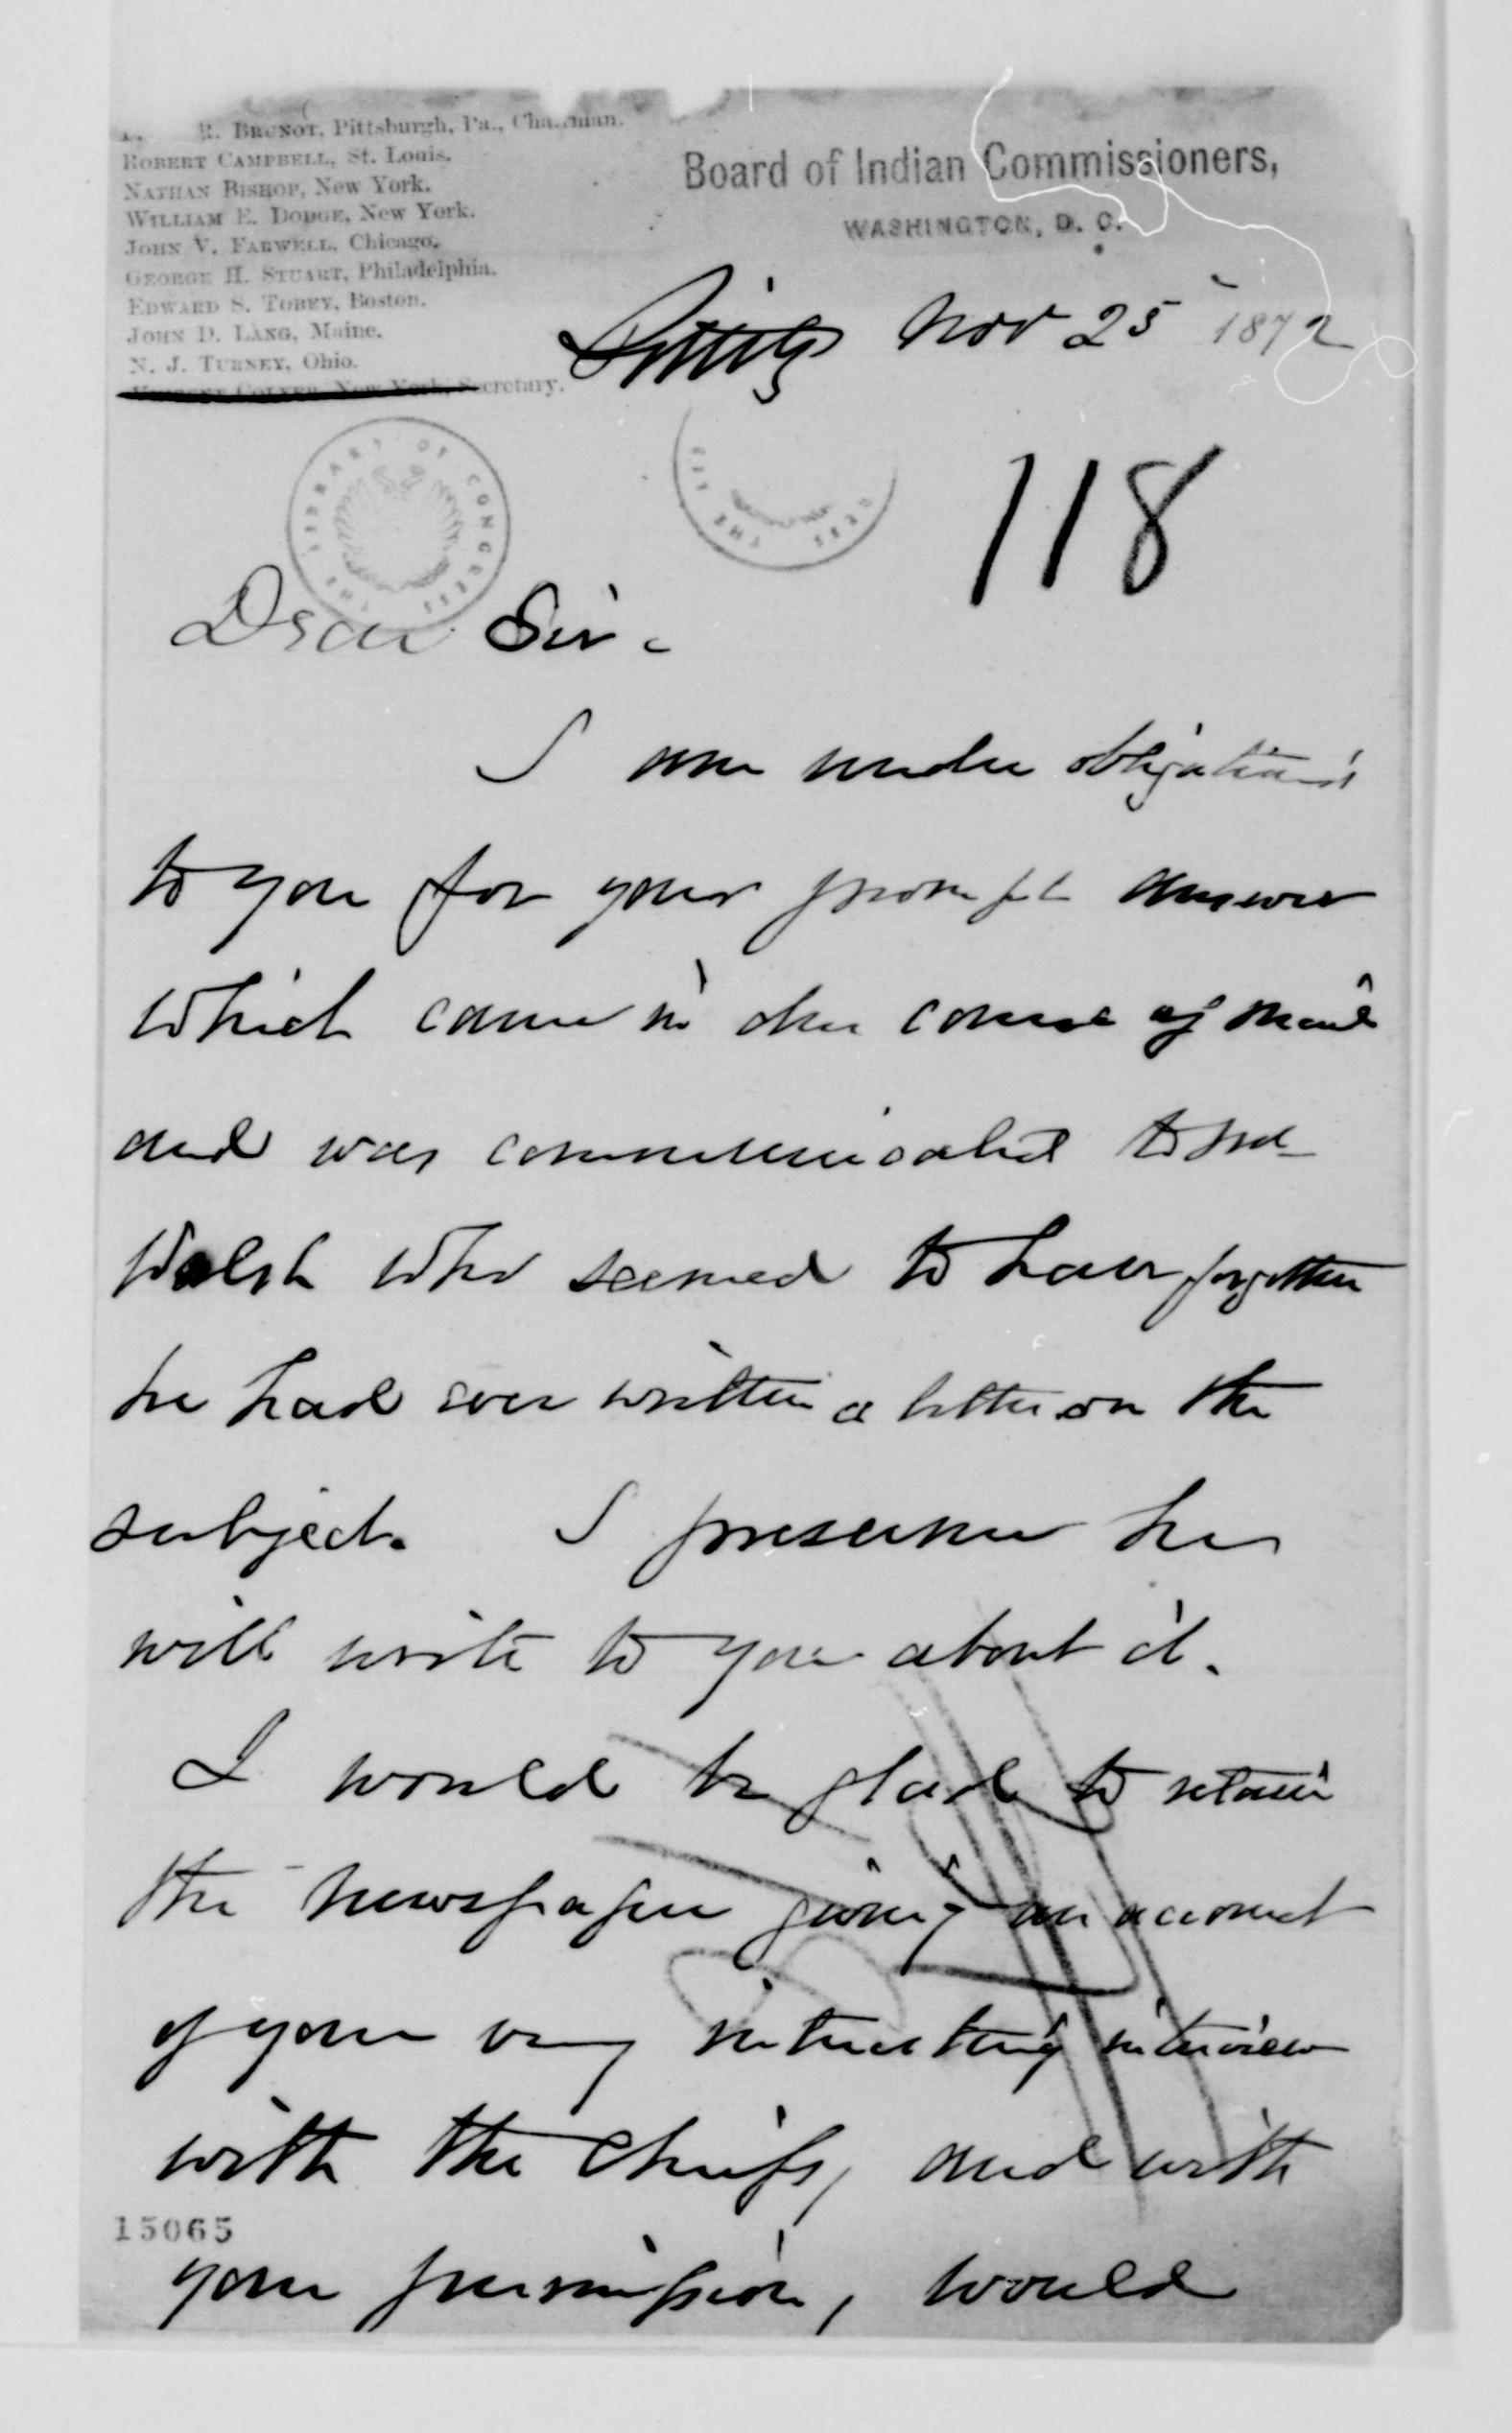 R. BRUNOT, Pittsburgh, Pa., Chairman.
ROBERT CAMPBELL, St. Louis.
NATHAN BISHOP, New York.
WILLIAM E. DODGE, New York.
JOHN V. FARWELL, Chicago.
GEORGE H. STUART, Philadelphia.
EDWARD S. TOBEY, Boston.
JOHN D. LANG, Maine.
N. J. TURNEY, Ohio.
VINCENT COLYER, New York, Secretary.
Board of Indian Commissioners,
WASHINGTON, D. C.
Pittsbg Nov 25 1872
THE LIBRARY OF CONGRESS
118
Dear Sir.
I am under obligations
to you for your prompt answer
which came in due course of mail
and was communicated to Mr
Walsh who seemed to have forgotten
he had ever written a letter on the
subject. I presume he
will write to you about it.
I would be glad to retain
the newspaper giving an account
of your very interesting interview
with the Chiefs, and with
15065
your permission, would